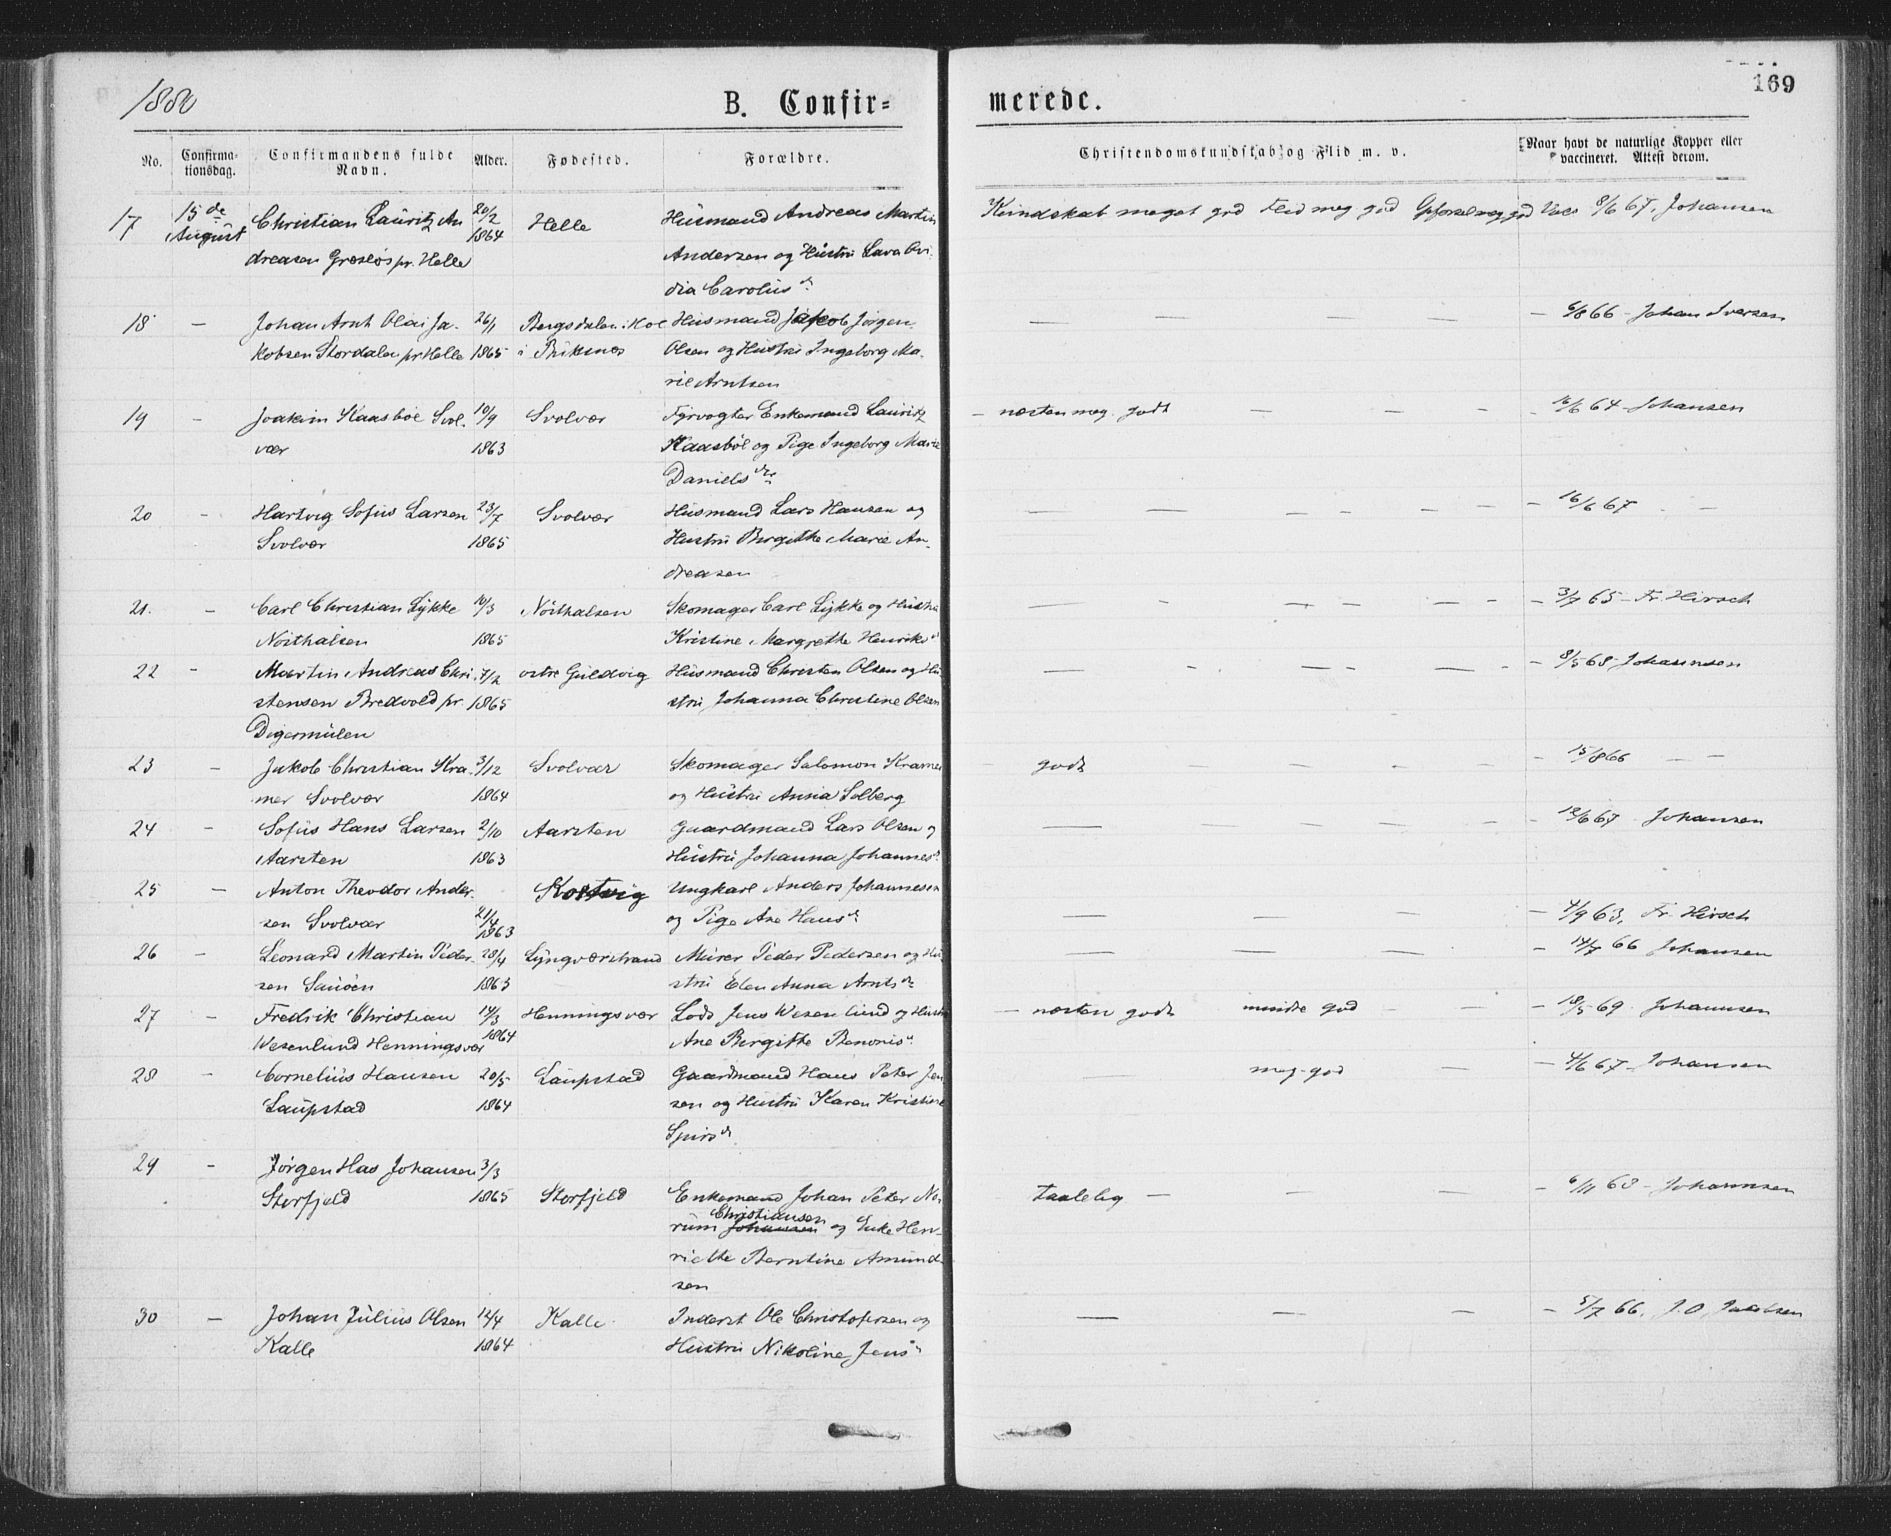 1880
B. Confir=
merede.
169
No.
Confirma-
tionsdag.
Confirmandens fulde
Navn.
Alder.
Fødested.
Forældre.
Christendomskundskab og Flid m. v.
Naar havt de naturlige Kopper eller
vaccineret. Attest derom.
17 15de Christian Lauritz An 20/2 Helle Husmand Andreas Martin Kundskab meget god Flid meg god Opførsel meg god Vacc 8/6 67. Johansen
August dreasen pr. Helle 1864 Andersen og Hustru
dia Carolius d.
18 — Johan Arnt Olai Ja- 26/1 Bergsdalen Husmand Jakob Jørgen — — — — 6/8 66 - Johan Iversen
kobsen Stordalen pr Helle 1865 i Olsen og Hustru Ingeborg Ma-
rie Arntsen
19 - Joakim Kaasbøl Svol- 10/9 Svolvær Fyrvogter Enkemand Lauritz - næsten meg. godt — — - - 16/6 64 - Johansen
vær 1863 Kaasbøl og Pige Ingeborg Marie
Daniels dr.
20 - Hartvig Sofus Larsen 23/7 Svolvær Husmand Lars Hansen og — — — - — - - 16/6 67 - -
Svolvær 1865 Hustru Birgitte Marie An-
dreasen
21. - Carl Christian Lykke 10/3 Skomager Carl Lykke og Hustru — - — - — - - 3/7 65 - Fr. Hirsch
1865 Kristine Margrethe Henriks d
22 - Martin Andreas Chri- 7/2 østre Guldvig Husmand Christen Olsen og Hu — - — - — - - 8/5 68 Johannsen
stensen Bredvold pr. 1865 stru Johanna Christine Olsen
Digermulen
23 - Jakob Christian Kra- 3/12 Svolvær Skomager Salomon Kramer - godt — — — - 15/8 66 - -
mer Svolvær 1864 og Hustru Anna Solberg
24 - Sofus Hans Larsen 2/10 Aarsten Gaardmand Lars Olsen og — — - - - 12/6 67 Johansen
Aarsten 1863 Hustru Johanna Johannes d.
25 — Anton Theodor Ander- Ungkarl Anders Johannesen
sen Svolvær 21/4 1863 og Pige Ane Hans d. — — — - 4/9 63. Fr. Hirsch
26 - Leonard Martin Peder- 28/4 Lyngværstrand Murer Peder Pedersen og Hu — — — - 14/7 66 Johansen
sen 1863 stru Elen Anna Arnts dr.
27 - Fredrik Christian 14/3 Henningsvær Lods Jens Wesenlund og Hustru - næsten godt mindre god - — - 18/5 69. Johannsen
Wesenlund Henningsvær 1864 Ane Birgitte Benonis d.
28 - Cornelius Hansen 20/5 Laupstad Gaardmand Hans Peter Jen — meg. god — - 4/6 67 - Johansen
Laupstad 1864 sen og Hustru Karen Kristine
29 - Jørgen Has Johansen 3/3
Storfjeld 1865 Storfjeld Enkemand Johan Peter No- taalelig - — — - 6/11 68 - Johannsen
Christiansen
rum Johansen og Enke Hen-
riette Berntine Amund-
sen
30 - Johan Julius Olsen 12/4 Kalle Inderst Ole Christofersen og — — — - 5/7 66. J. O. Jakobsen
Kalle 1864 Hustru Nikoline Jens d.